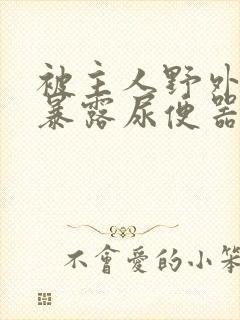 被主人野外
暴露尿便器
不會愛的小笨